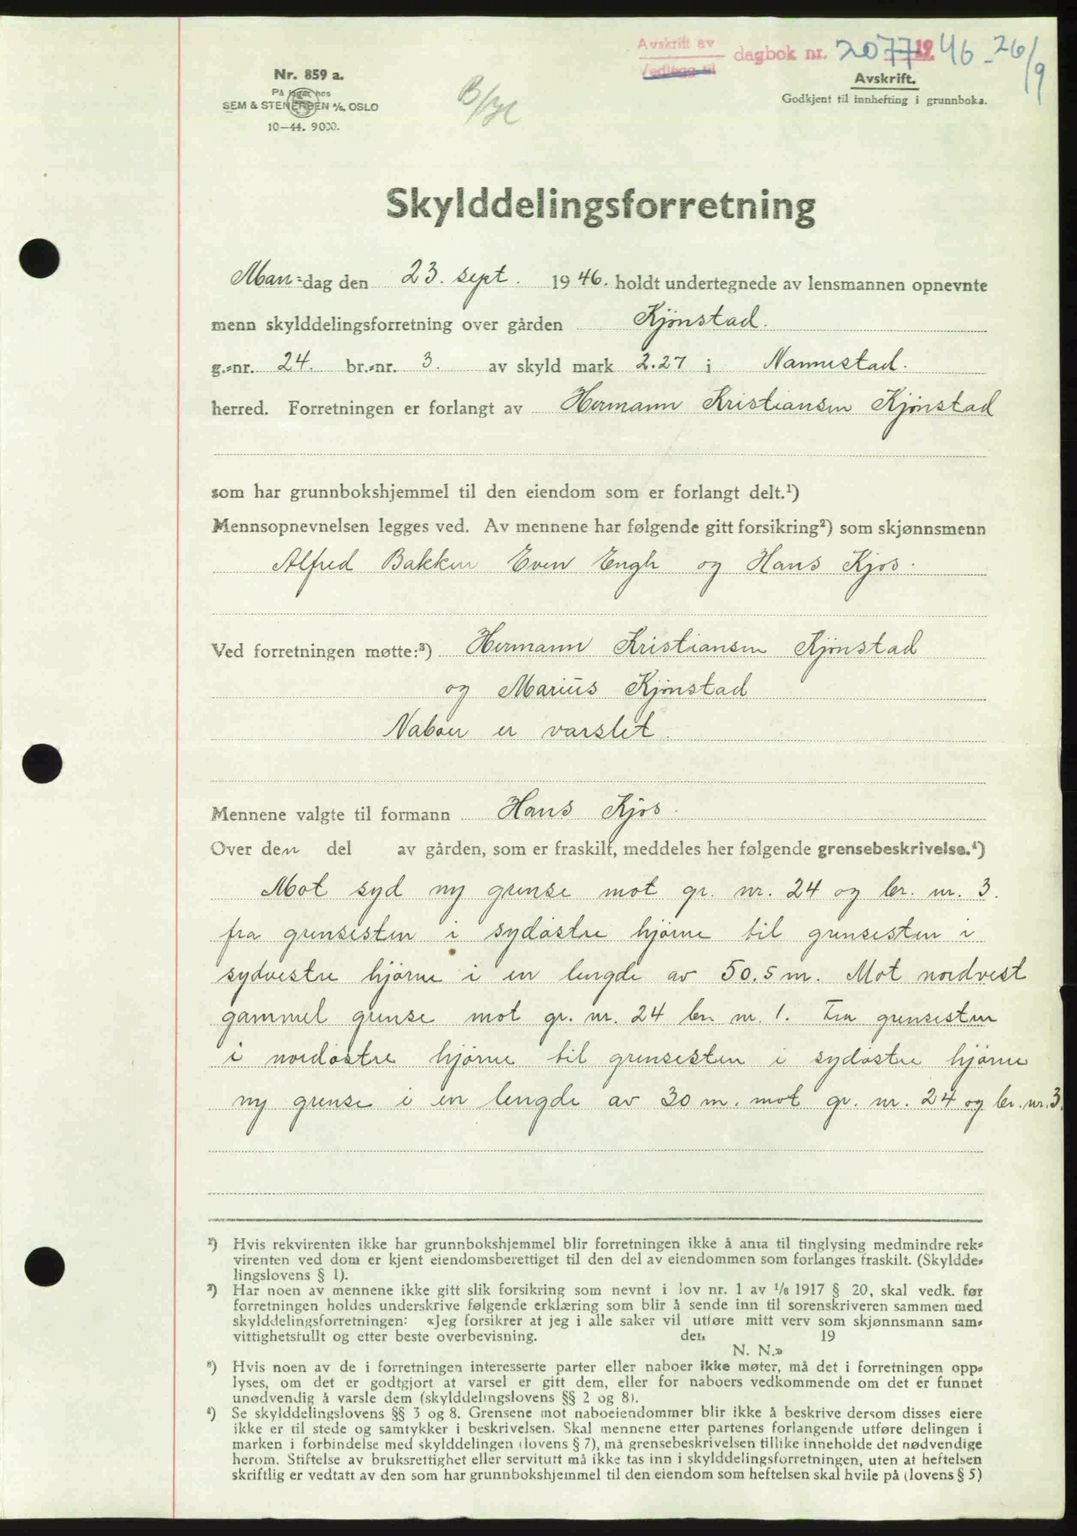 Avskrift av
Vedlegg til
dagbok nr. 2077 1946 - 26/9
Nr. 859 a.
På lager hos
SEM & STENERSEN A/S, OSLO
10—44. 9000.
Avskrift.
Godkjent til innhefting i grunnboka.
Skylddelingsforretning
Man-dag den 23. sept. 1946. holdt undertegnede av lensmannen opnevnte
menn skylddelingsforretning over gården Kjønstad.
g.-nr. 24. br.-nr. 3. av skyld mark 2.27 i Nannestad.
herred. Forretningen er forlangt av Hermann Kristiansen Kjønstad
som har grunnbokshjemmel til den eiendom som er forlangt delt.¹)
Mennsopnevnelsen legges ved. Av mennene har følgende gitt forsikring²) som skjønnsmenn
Alfred Bakken Even Engh og Hans Kjos.
Ved forretningen møtte:³) Hermann Kristiansen Kjønstad
og Marius Kjønstad
Naboer er varslet.
Mennene valgte til formann Hans Kjos.
Over den del av gården, som er fraskilt, meddeles her følgende grensebeskrivelse.⁴)
Mot syd ny grense mot gr. nr. 24 og br. nr. 3.
fra grensesten i sydøstre hjørne til grensesten i
sydvestre hjørne i en lengde av 50.5 m. Mot nordvest
gammel grense mot gr. nr. 24 br. nr. 1. Fra grensesten
i nordøstre hjørne til grensesten i sydøstre hjørne
ny grense i en lengde av 30 m. mot gr. nr. 24 og br. nr. 3.
¹) Hvis rekvirenten ikke har grunnbokshjemmel blir forretningen ikke å anta til tinglysing medmindre rek-
virenten ved dom er kjent eiendomsberettiget til den del av eiendommen som forlanges fraskilt. (Skyldde-
lingslovens § 1).
²) Har noen av mennene ikke gitt slik forsikring som nevnt i lov nr. 1 av 1/8 1917 § 20, skal vedk. før
forretningen holdes underskrive følgende erklæring som blir å sende inn til sorenskriveren sammen med
skylddelingsforretningen: «Jeg forsikrer at jeg i alle saker vil utføre mitt verv som skjønnsmann sam-
vittighetsfullt og etter beste overbevisning. den 19
N. N.»
³) Hvis noen av de i forretningen interesserte parter eller naboer ikke møter, må det i forretningen opp-
lyses, om det er godtgjort at varsel er gitt dem, eller for naboers vedkommende om det er funnet
unødvendig å varsle dem (skylddelingslovens §§ 2 og 8).
⁴) Se skylddelingslovens §§ 3 og 8. Grensene mot naboeiendommer blir ikke å beskrive dersom disses eiere
ikke er til stede og samtykker i beskrivelsen. Skal mennene etter partenes forlangende utføre delingen i
marken i forbindelse med skylddelingen (lovens § 7), må grensebeskrivelsen tillike inneholde det nødvendige
herom. Stiftelse av bruksrettighet eller servitutt må ikke tas inn i skylddelingsforretningen, uten at heftelsen
skriftlig er vedtatt av den som har grunnbokshjemmel til den eiendom som heftelsen skal hvile på (lovens § 5)